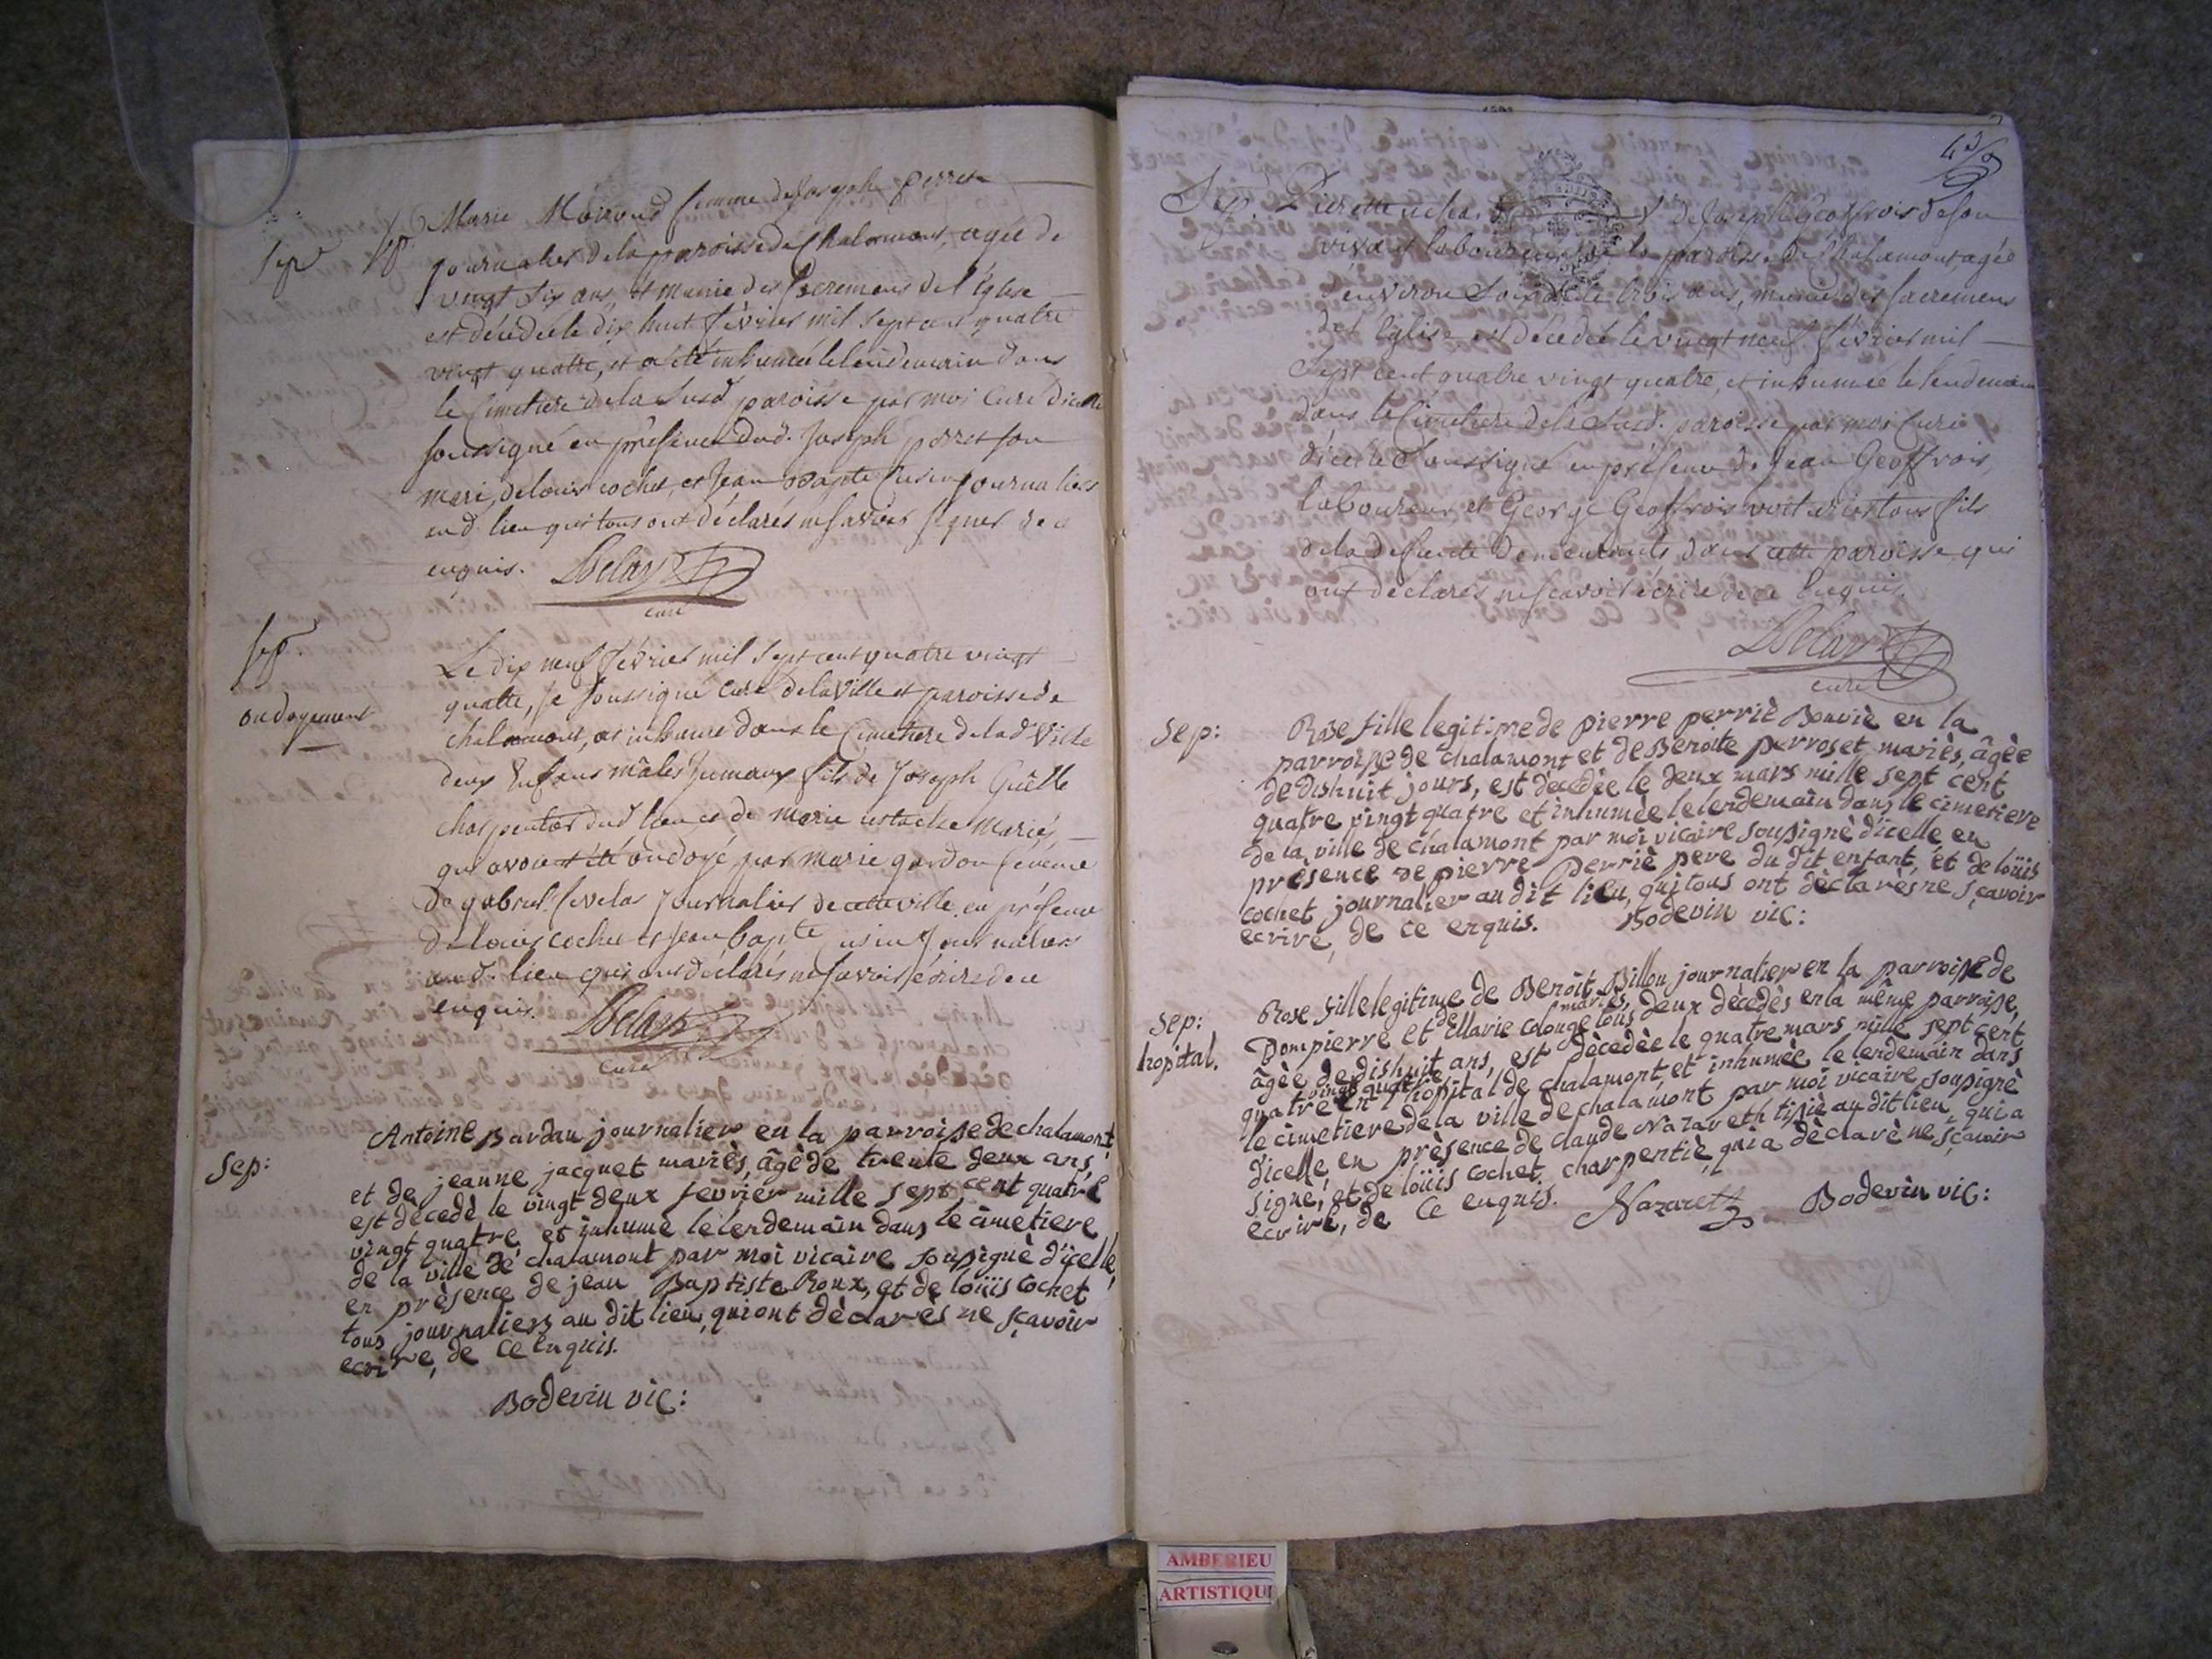 Sep
Marie Moiroud femme de Joseph perret
journalier de la paroisse de Chalamont, agée de
vingt six ans, et munie des Sacremens de l'Eglise
est décedée le dix huit février mil sept cent quatre
vingt quatre, et a été inhumée le lendemain dans
le Cimetiere de la Susd. paroisse par moi Curé d'icelle
soussigné en présence dud. Joseph perret son
mari, de louis cochet, et Jean Bapte Cusin journaliers
aud. lieu qui tous ont déclarés ne savoir signer de ce
enquis.
curé
Sep.
ondoyement
Le dix neuf février mil sept cent quatre vingt
quatre, je soussigné Curé de la Ville et paroisse de
chalamont, ai inhumé dans le Cimetiere de lad. Ville
deux Enfans mâles Jumaux fils de Joseph
charpentier dud. lieu et de Marie mariés,
qui avoient été ondoyé par Marie gardon femme
de gabriel Journalier de cette ville en présence
de louis cochet et Jean bapte cusin Journaliers
aud. lieu qui ont déclarés ne savoir écrire de ce
enquis.
curé
Sep:
Antoine Bardau journalier en la parroisse de chalamont
et de jeanne jacquet mariès, âgè de trente deux ans,
est dècedè le vingt deux fevrier mille sept cent quatre
vingt quatre, et inhumè le lendemain dans le cimetiere
de la ville de chalamont par moi vicaire soussignè d'icelle,
en prèsence de jean Baptiste Roux, et de loüis Cochet
tous journaliers au dit lieu, qui ont dèclarès ne sçavoir
ecrire, de ce enquis.
Bodevin vic:
Sep. Pierrette de Joseph Geoffrois de son
vivant laboureur de la paroisse de Chalamont, agée
d'environ Soixante trois ans, munie des sacremens
de l'église est décedée le vingt neuf février mil
Sept cent quatre vingt quatre, et inhumée le lendemain
dans le Cimetiere de la Susd. paroisse par moi Curé
d'icelle Soussigné en présence de Jean Geoffrois,
laboureur et George Geoffrois voiturier tous fils
de la defunte demeurants dans cette paroisse qui
ont déclarés ne scavoir écrire de ce Enquis.
curé
Sep:
Rose fille legitime de pierre perriè Bouviè en la
parroisse de chalamont et de Benoite perroset mariès, âgèe
de dishuit jours, est dècedèe le deux mars mille sept cent
quatre vingt quatre et inhumèe le lendemain dans le cimetiere
de la ville de chalamont par moi vicaire soussignè d'icelle, en
prèsence de pierre Perriè pere du dit enfant, et de loüis
cochet journalier au dit lieu, qui tous ont dèclarès ne sçavoir
ecrire, de ce enquis. Bodevin vic:
Sep:
hopital.
Rose fille legitime de Benoit Billon journalier en la parroisse de
Dompierre et de Marie Colonge mariès, tous deux dècedès en la même parroisse,
âgèe de dishuit ans, est dècedèe le quatre mars mille sept cent
quatre vingt quatre en l'hopital de chalamont et inhumèe le lendemain dans
le cimetiere de la ville de chalamont par moi vicaire soussignè
d'icelle, en prèsence de claude Nazareth tissiè au dit lieu, qui a
signè, et de loüis cochet charpentiè, qui a dèclarè ne sçavoir
ecrire, de ce enquis. Nazareth Bodevin vic:
AMBERIEU
ARTISTIQU